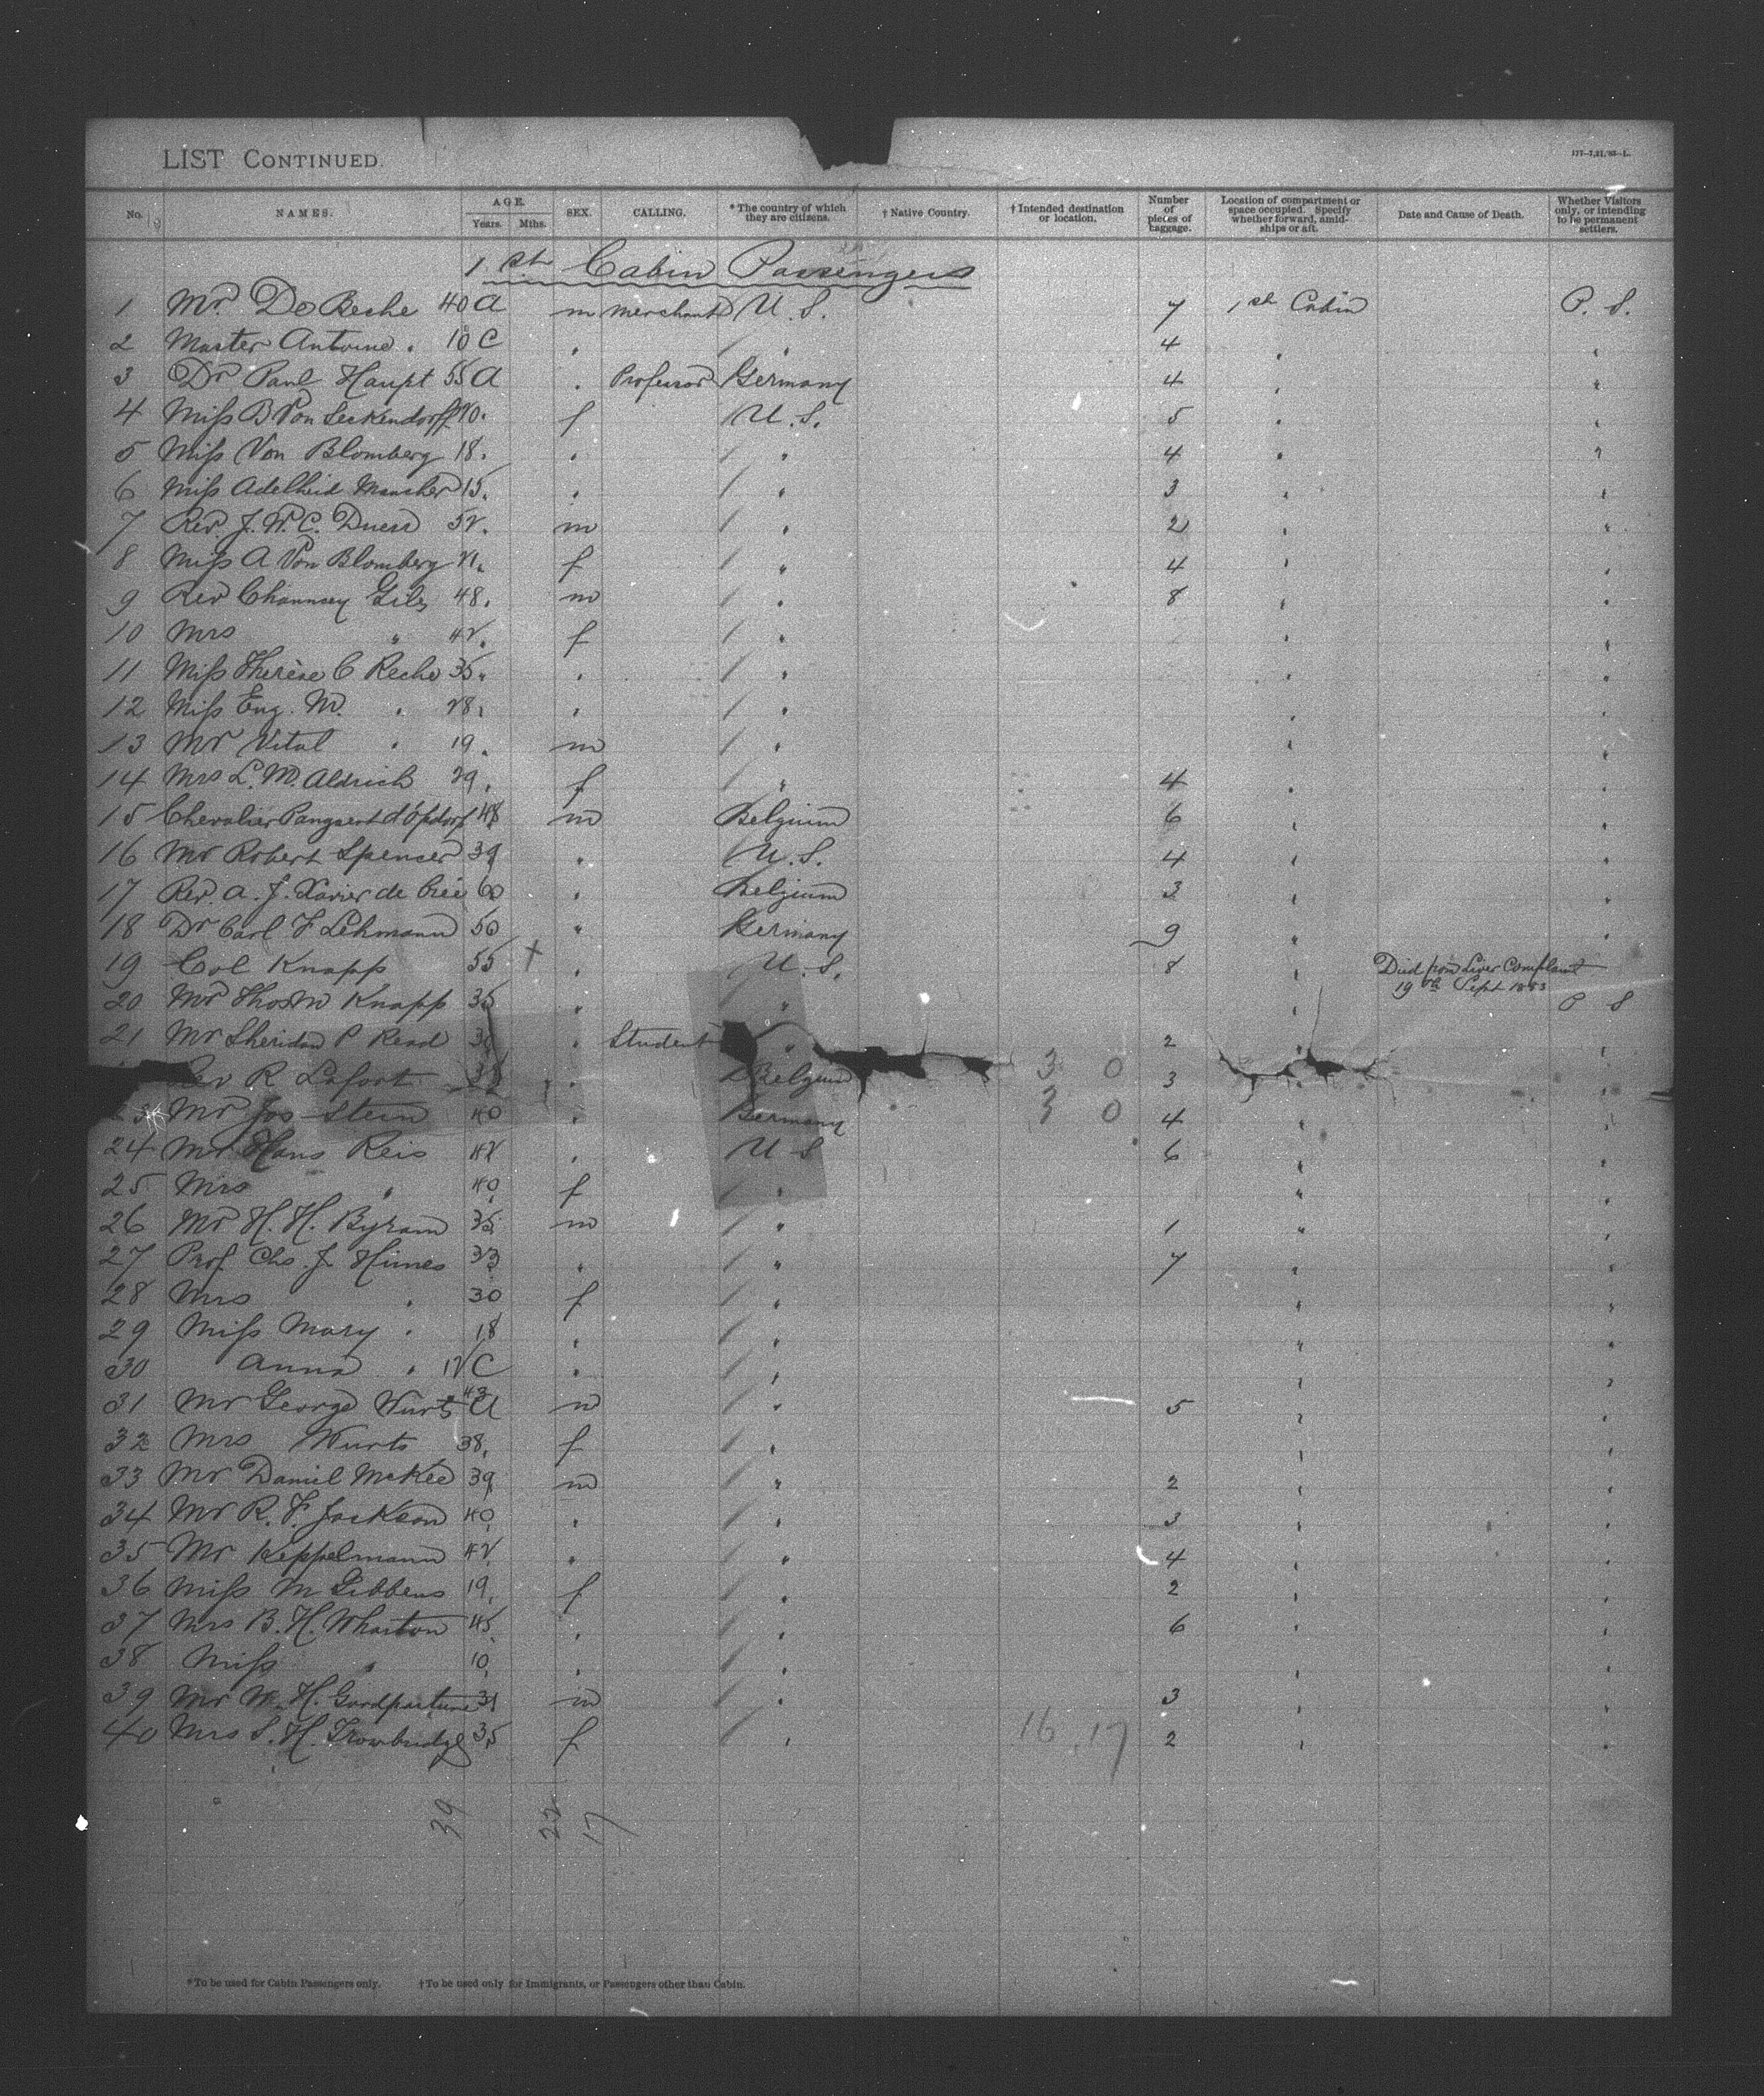 LIST CONTINUED.
No. NAMES. AGE. Years. Mths. SEX. CALLING. *The country of which they are citizens. †Native Country. †Intended destination or location. Number of pieces of baggage. Location of compartment or space occupied. Specify whether forward, amidships or aft. Date and Cause of Death. Whether Visitors only, or intending to be permanent settlers.
1st Cabin Passengers
1 Mr. De Beche 40 A m merchant U.S. 7 1st Cabin P. S.
2 Master Antoine " 10 C " / " 4 " "
3 Dr Paul Haupt 55 A " Professor Germany 4 " "
4 Miss B. Von Seckendorff 20 " f U.S. 5 " "
5 Miss Von Blomberg 18 " " / " 4 " "
6 Miss Adelheid 15 " " / " 3 " "
7 Rev. J. W. C. 52 " m / " 2 " "
8 Miss A Von Blomberg 21 " f / " 4 " "
9 Rev Chauncey Giles 48 " m / " 8 " "
10 Mrs " 42 " f / " " "
11 Miss Therèse C Reche 35 " " / " " "
12 Miss Eug. M. " 28 " " / " " "
13 Mr Vital " 19 " m / " " "
14 Mrs L. M. Aldrich 29 " f / " 4 " "
15 Chevalier Pangaert d'Opdorp 48 m Belgium 6 " "
16 Mr Robert Spencer 39 " U.S. 4 " "
17 Rev. A. J. Xavier de 60 " Belgium 3 " "
18 Dr Carl F Lehmann 50 " Germany 9 " "
19 Col Knapp 55 † " U.S. 8 " Died from Liver Complaint
19th Sept 1883
20 Mr Thos M Knapp 35 " " " P S
21 Mr Sheridan P Read 30 " Student " 2 " "
Rev R Lafort " Belgium 3 0 3 " "
23 Mr Jos Stein 40 " Germany 3 0 4 " "
24 Mr Hans Reis 42 " U S 6 " "
25 Mrs " 40 f " " "
26 Mr H. H. Byram 35 m / " 1 " "
27 Prof. Chs. J. Himes 33 " / " 7 " "
28 Mrs " 30 f / " " "
29 Miss Mary " 18 " / " " "
30 Anna " 12 C " / " " "
31 Mr George Wurts 43 A m / " 5 " "
32 Mrs Wurts 38 " f / " " "
33 Mr Daniel McKee 39 m / " 2 " "
34 Mr R. F. Jackson 40 " / " 3 " "
35 Mr Keppelmann 42 " / " 4 " "
36 Miss M Gibbens 19 f / " 2 " "
37 Mrs B. H. Wharton 45 " / " 6 " "
38 Miss " 10 " / " " "
39 Mr W. H. 31 m / " 3 " "
40 Mrs S. H. Trowbridge 35 f / " 16 . 17 2 " "
39 22 17
*To be used for Cabin Passengers only. †To be used only for Immigrants, or Passengers other than Cabin.